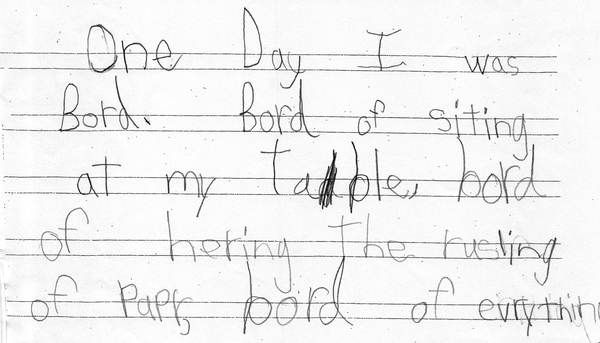 One Day I was
Bord. Bord of siting
at my table, bord
of hering the rusling
of papr, bord of evrythin